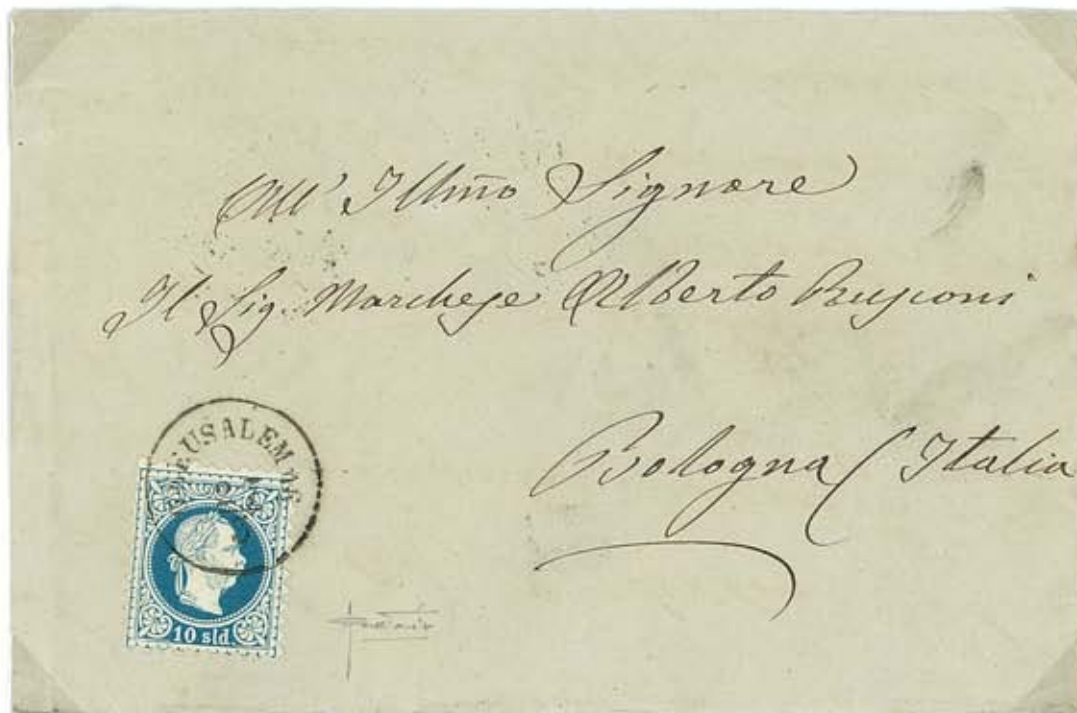 All' Illmo Signore
Il Sig. Marchese Alberto Rusconi
Bologna (Italia
JERUSALEM
10 sld.